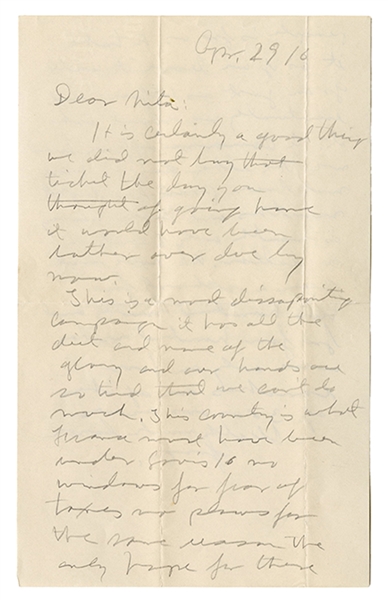 Apr. 29/16
Dear Nita:
It is certainly a good thing
we did not buy that
ticket the day you
thought of going home
it would have been
rather over due by
now.
This is a most dissapointing
campaign it has all the
dirt and none of the
glory and our hands are
so tied that we cant do
much. This country is what
France must have been
under Louis 16 no
windows for fear of
taxes no plows for
the same reason the
only hope for these